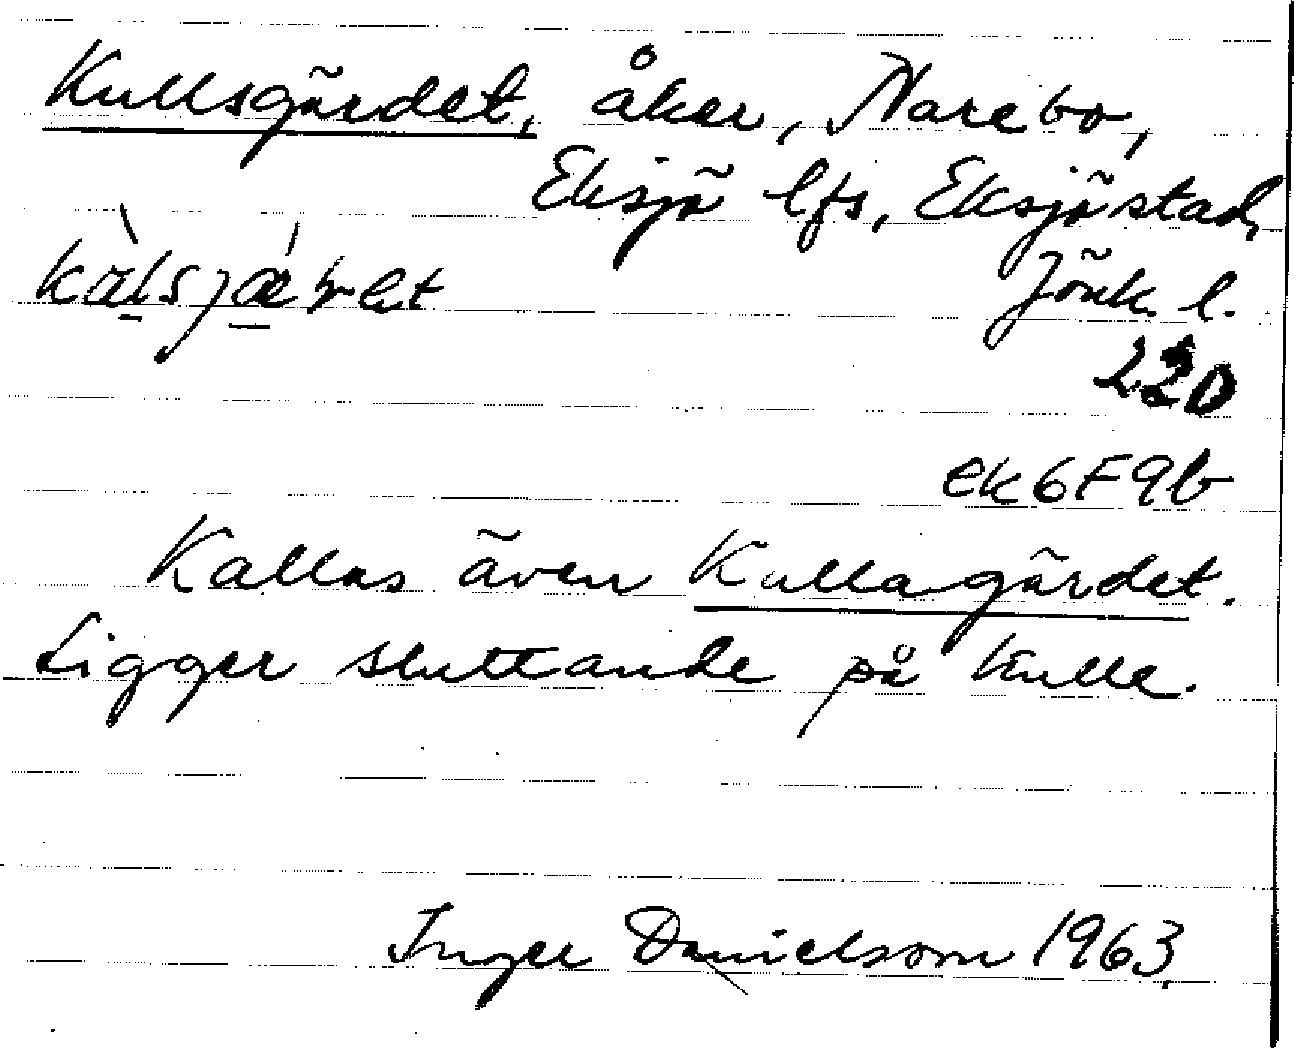 Kullsgärdet, åker, Narebo,
Eksjö lfs, Eksjö stad,
Jönk. l.
22D
ek 6F9b
Kallas även Kullagärdet.
Ligger sluttande på kulle.
Inger Danielsson 1963.